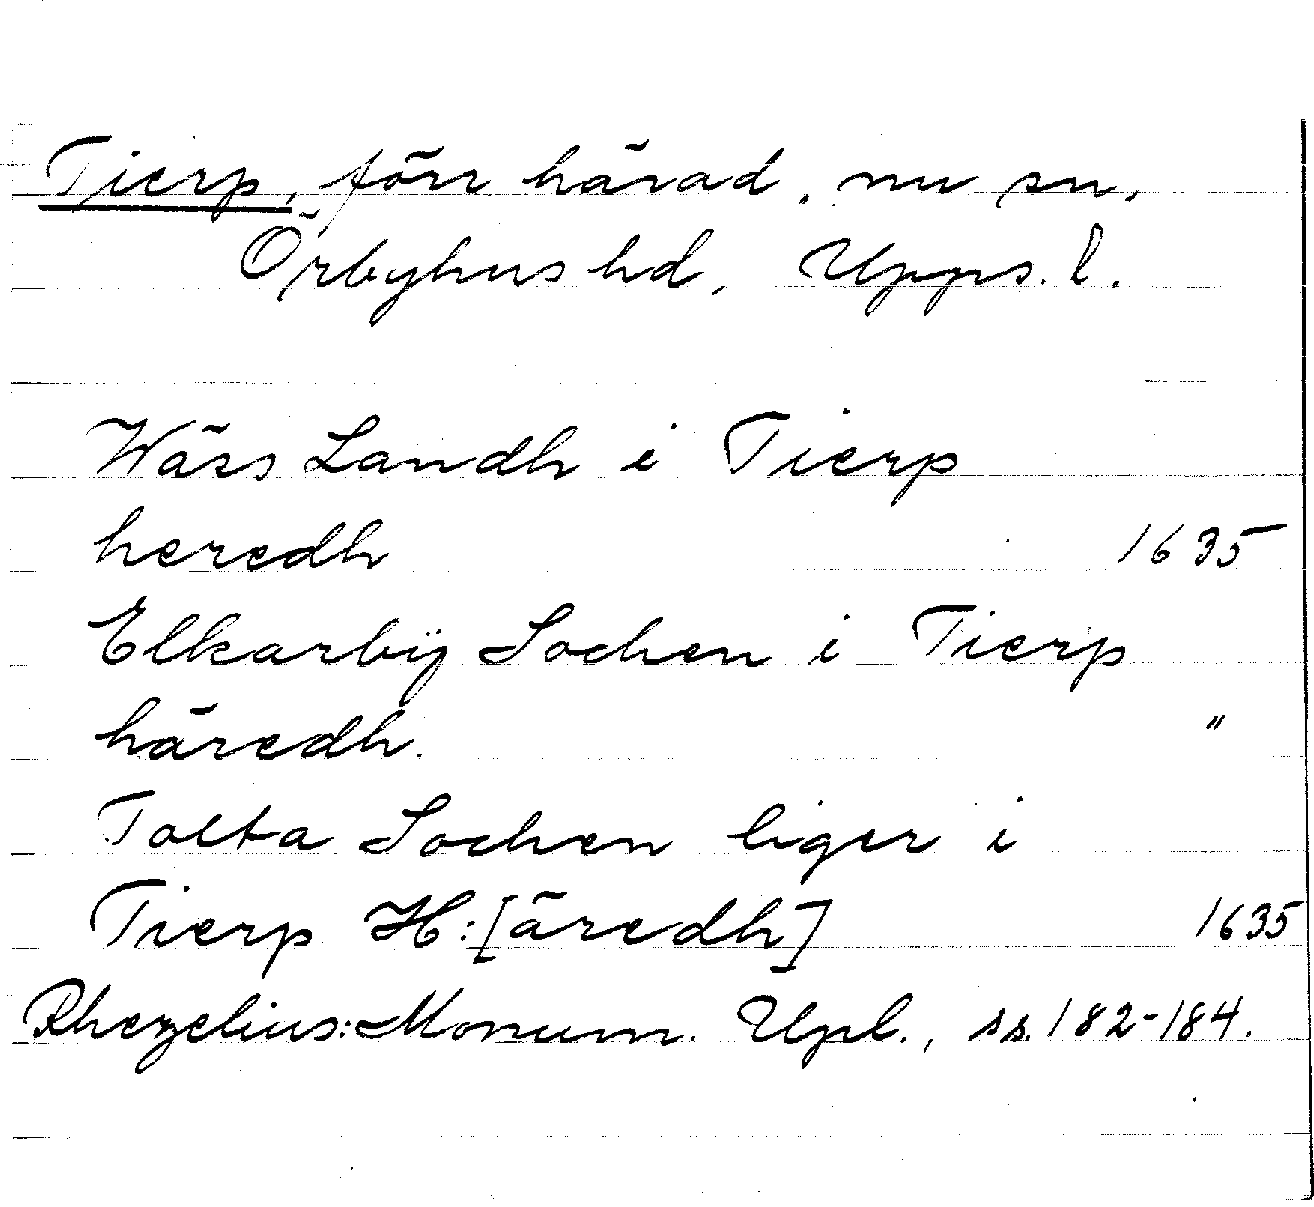 Tierp, förr härad, nu sn,
Örbyhus hd, Upps. l.
Wårs Landh i Tierp
heredh 1635
Elkarbÿ Sochen i Tierp
häredh. "
Tolta Sochen liger i
Tierp H:[äredh] 1635
Rhezelius: Monum. Upl., ss. 182-184.